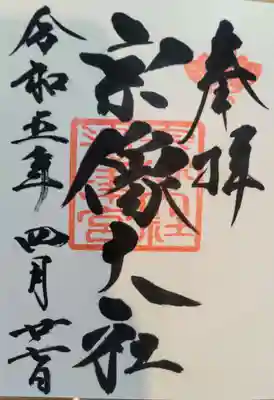 奉拝
宗像大社
令和五年 四月廿七日